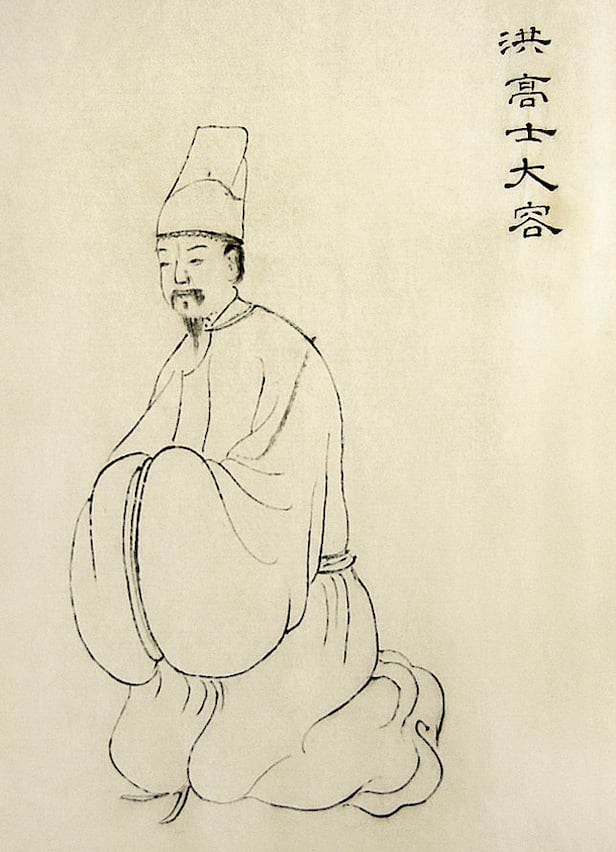 洪高士大容